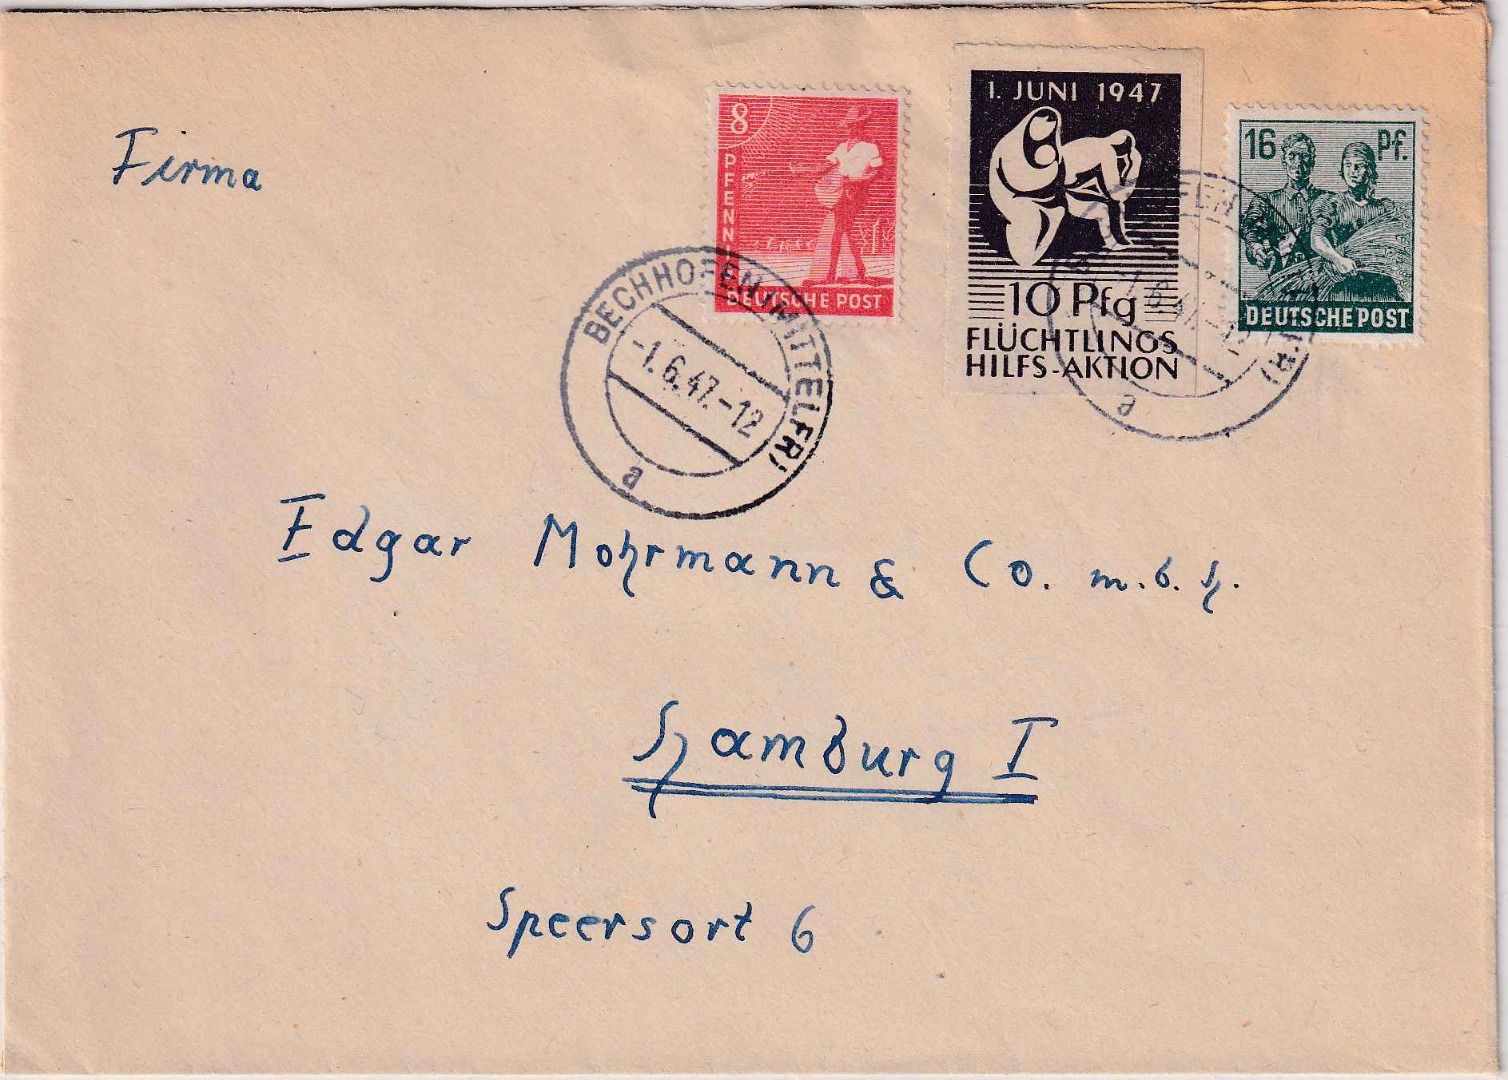 Firma
8
PFENNIG
DEUTSCHE POST
1. JUNI 1947
10 Pfg
FLÜCHTLINGS
HILFS-AKTION
16 Pf.
DEUTSCHE POST
BECHHOFEN (MITTELFR)
-1.6.47.-12
a
a
Edgar Mohrmann & Co. m.b.H.
Hamburg I
Speersort 6